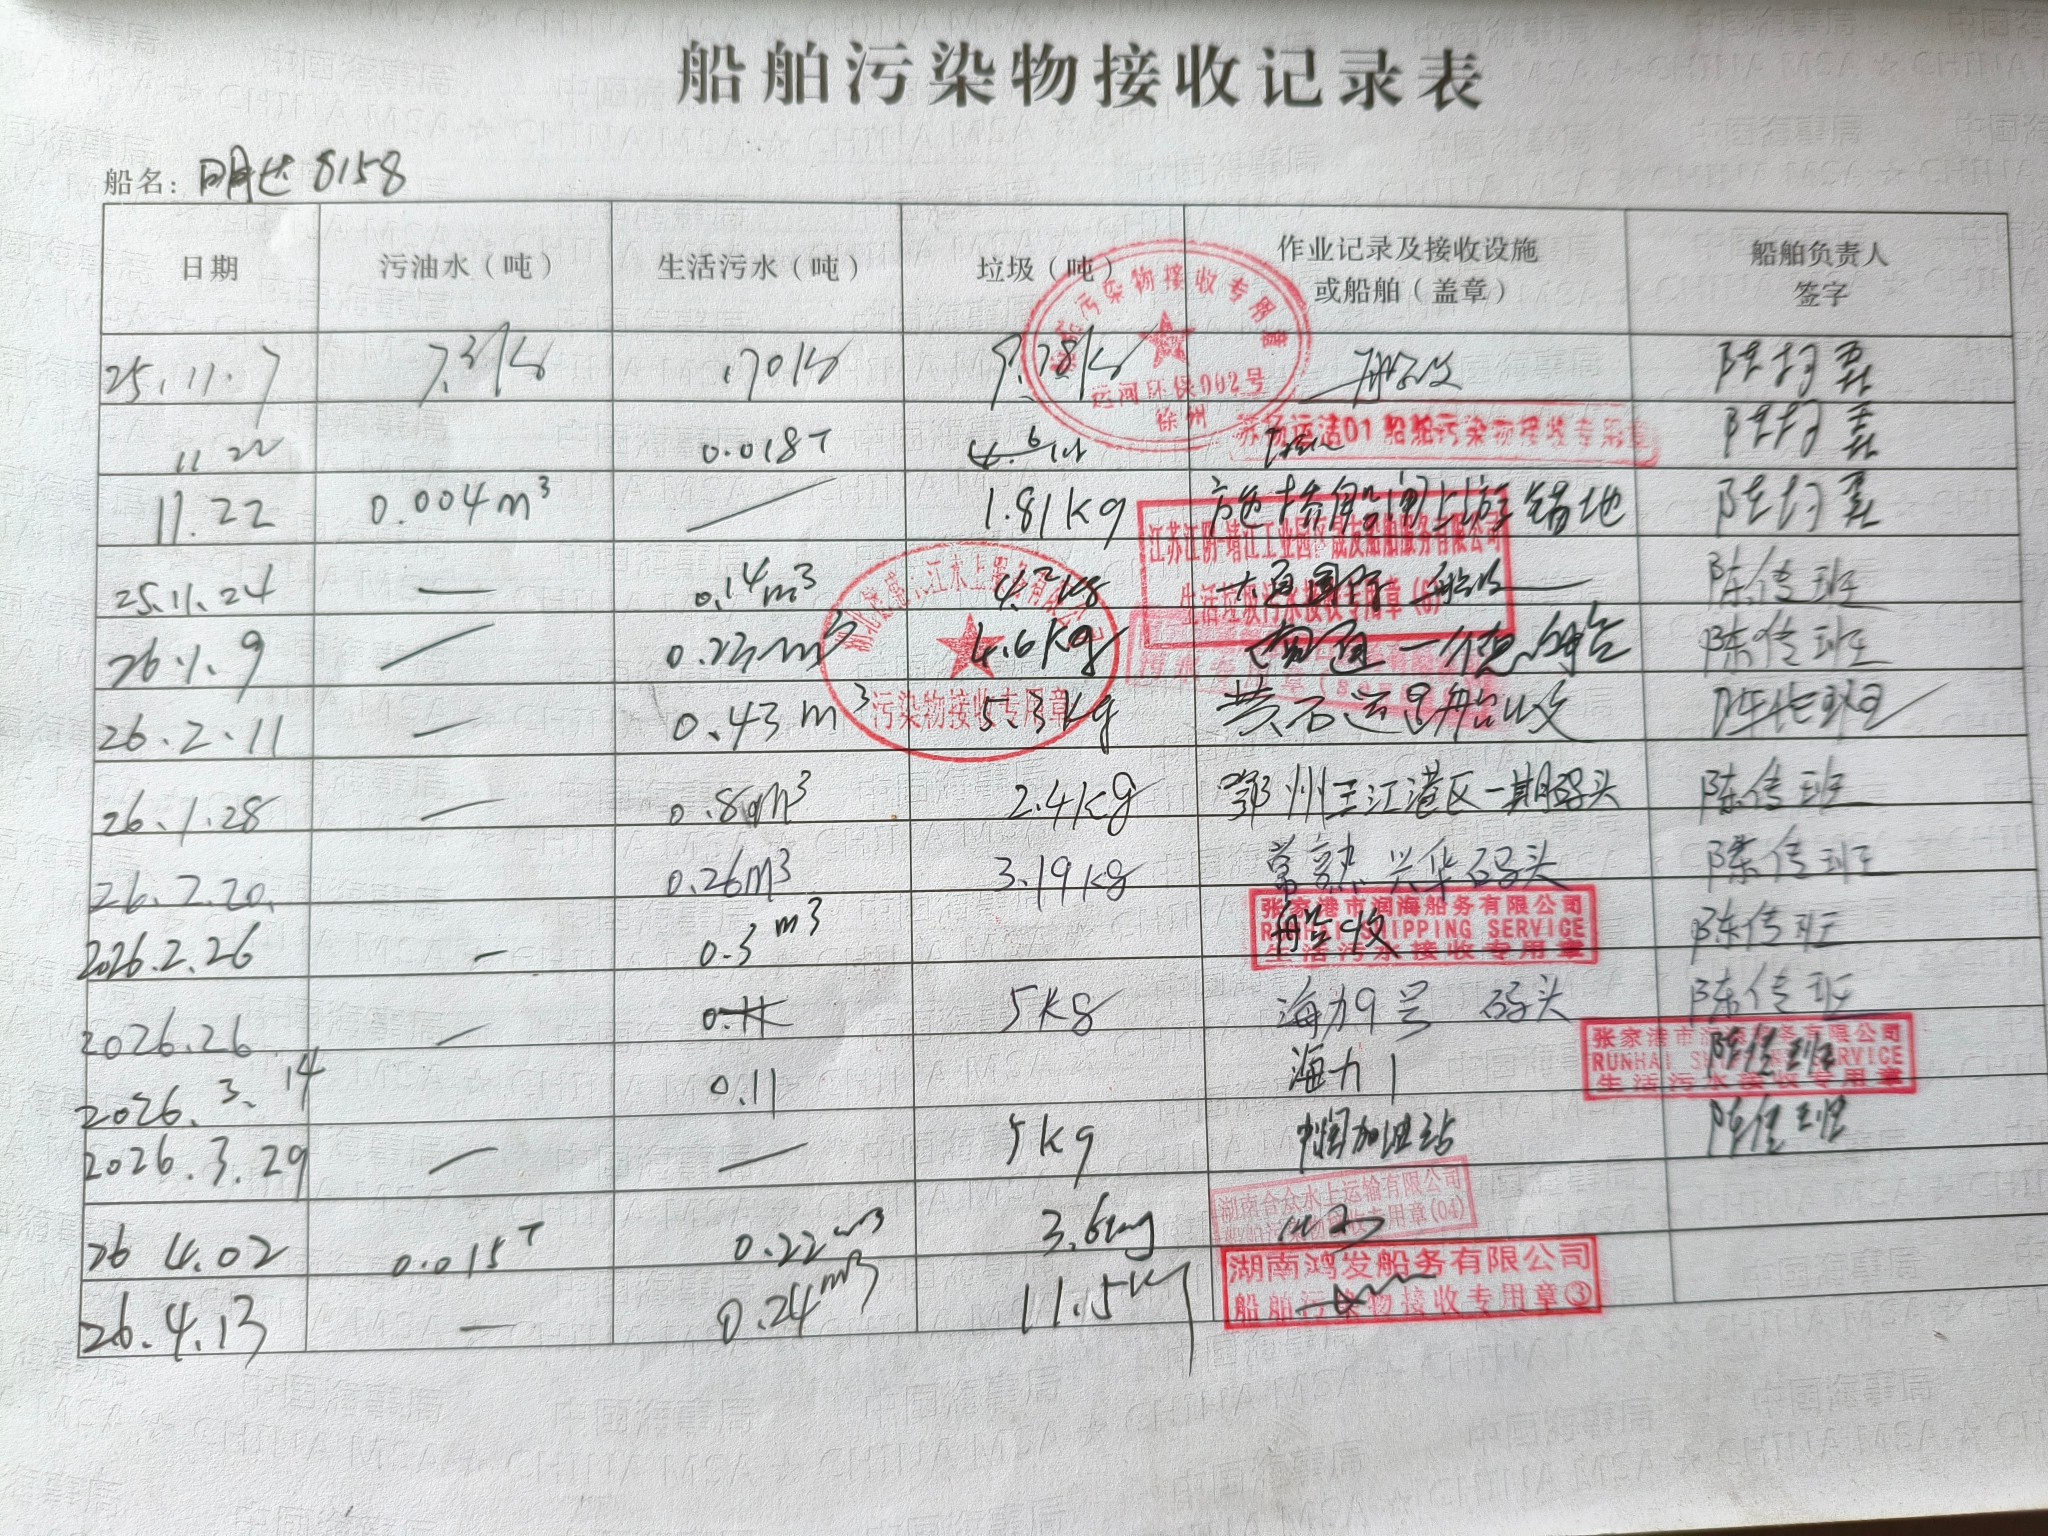 船舶污染物接收记录表
船名：明达8158
日期 污油水（吨） 生活污水（吨） 垃圾（吨） 作业记录及接收设施或船舶（盖章） 船舶负责人签字
船舶污染物接收专用章
运河环保002号
徐州
25.11.7
11.22 0.018T
苏扬运洁01船舶污染物接收专用章
11.22 0.004m³ — 1.81kg 施桥船闸上游锚地
江苏江阴-靖江工业园区晟友船舶服务有限公司
生活垃圾污水接收专用章
25.11.24 — 0.14m³ 4.2kg 陈传班
26.1.9 — 0.23m³ 4.6kg 陈传班
污染物接收专用章
26.2.11 — 0.43m³ 5.3kg 黄石 船收 陈传班
26.1.28 — 0.8m³ 2.4kg 鄂州三江港区一期码头 陈传班
26.2.20. 0.26m³ 3.19kg 常熟兴华码头 陈传班
2026.2.26 — 0.3m³ 船收 陈传班
张家港市润海船务有限公司
RUNHAI SHIPPING SERVICE
生活污水接收专用章
2026.26 — 0.11 5kg 海力9号 码头 陈传班
2026.3.14 0.11 海力1 陈传班
张家港市润海船务有限公司
RUNHAI SHIPPING SERVICE
生活污水接收专用章
2026.3.29 — — 5kg 加油站 陈传班
湖南合众水上运输有限公司
船舶污染物接收专用章(04)
26 4.02 0.015T 0.22m³ 3.6kg
湖南鸿发船务有限公司
船舶污染物接收专用章③
26.4.13 — 0.24m³ 11.5kg